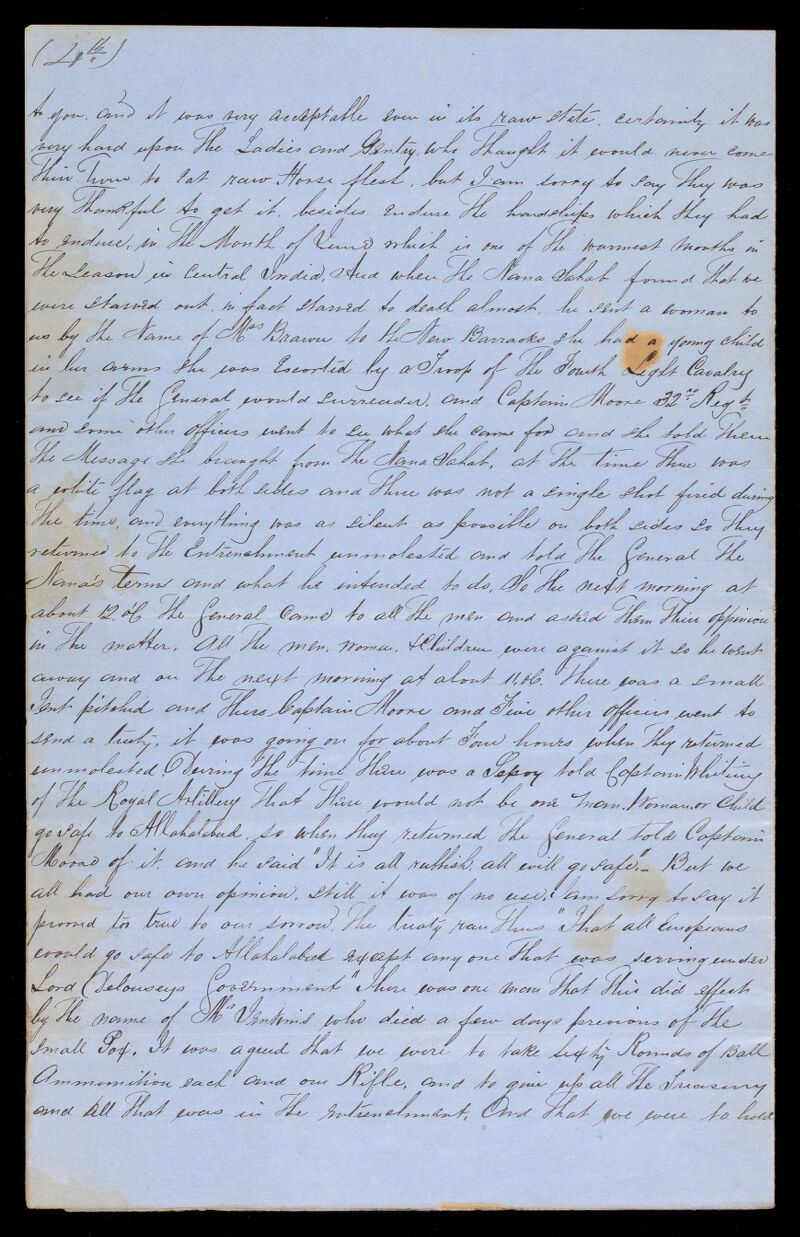 (4th)
to you. and it was very acceptable even in its raw state. certainly it was
very hard upon The Ladies and Gentry. who Thought it would never come
Thier Turn to Eat raw Horse flesh. but I am sorry to say They was
very Thankful to get it, besides endure The hardships which they had
to endure, in The Month of June which is one of The warmest months in
The Season in Central India. And when The Nana Sahab found That we
were starved out, in fact starved to death almost. he sent a woman to
us by the Name of Mrs Brawn to the New Barracks she had a young child
in her arms she was Escorted by a Troop of The Fourth Light Cavalry
to see if The General would surrender. and Captain Moore 32nd Regt
and some other officers went to see what she came for and she told Them
The Message she braught from The Nana Sahab. at The time Thre was
a white flag at both sides and There was not a single shot fired during
The time, and everything was as silent as possible on both sides so They
returned to The Entrenchment unmolested and told The General The
Nana's terms and what he intended to do. So The next morning at
about 12. oC The General Came to all The men and asked Them Their oppinion
in The matter. All The men. woman. & Children were against it so he went
away and on The next morning at about 11. oC. There was a small
Tent pitched and There Captain Moore and Five other officers went to
send a treaty. it was going on for about Four hours when They returned
unmolested During The time There was a Sepoy told Captain Whiting
of The Royal Artillery That There would not be one Man. Woman. or Child
go safe to Allahalabad. so when they returned The General told Captain
Moore of it. and he said "It is all rubbish. all will go safe." - But we
all had our own opinion. still it was of no use. I am sorry to say it
proved too true to our sorrow. The treaty ran Thus "That all Europeans
would go safe to Allahalabad except any one That was serving under
Lord Delouseys Government" There was one man That This did effect
by The name of Mr Jenkins who died a few days previous of The
small Pox. It was agreed That we were to take sixty Rounds of Ball
Ammunition each and our Rifle. and to give up all The Treasury
and all That was in The entrenchment. And That we were to hold